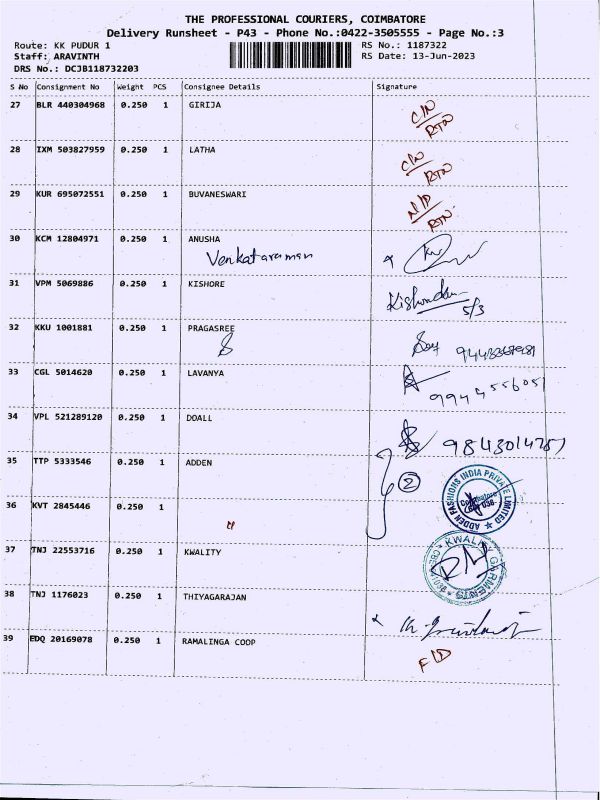 THE PROFESSIONAL COURIERS, COIMBATORE
Delivery Runsheet - P43 - Phone No.:0422-3505555 - Page No.:3
Route: KK PUDUR 1 RS No.: 1187322
Staff: ARAVINTH RS Date: 13-Jun-2023
DRS No.: DCJB118732203
S No Consignment No Weight PCS Consignee Details Signature
27 BLR 440304968 0.250 1 GIRIJA C/N
RTN
28 IXM 503827959 0.250 1 LATHA C/N
RTN
29 KUR 695072551 0.250 1 BUVANESWARI N/P
RTN
30 KCM 12804971 0.250 1 ANUSHA
Venkataraman
31 VPM 5069886 0.250 1 KISHORE
5/3
32 KKU 1001881 0.250 1 PRAGASREE
33 CGL 5014620 0.250 1 LAVANYA
9944556051
34 VPL 521289120 0.250 1 DOALL
9843014757
35 TTP 5333546 0.250 1 ADDEN 2
ADDEN FASHIONS INDIA PRIVATE LIMITED
Coimbatore
36 KVT 2845446 0.250 1
37 TNJ 22553716 0.250 1 KWALITY
KWALITY GARMENTS
38 TNJ 1176023 0.250 1 THIYAGARAJAN
39 EDQ 20169078 0.250 1 RAMALINGA COOP
F/D